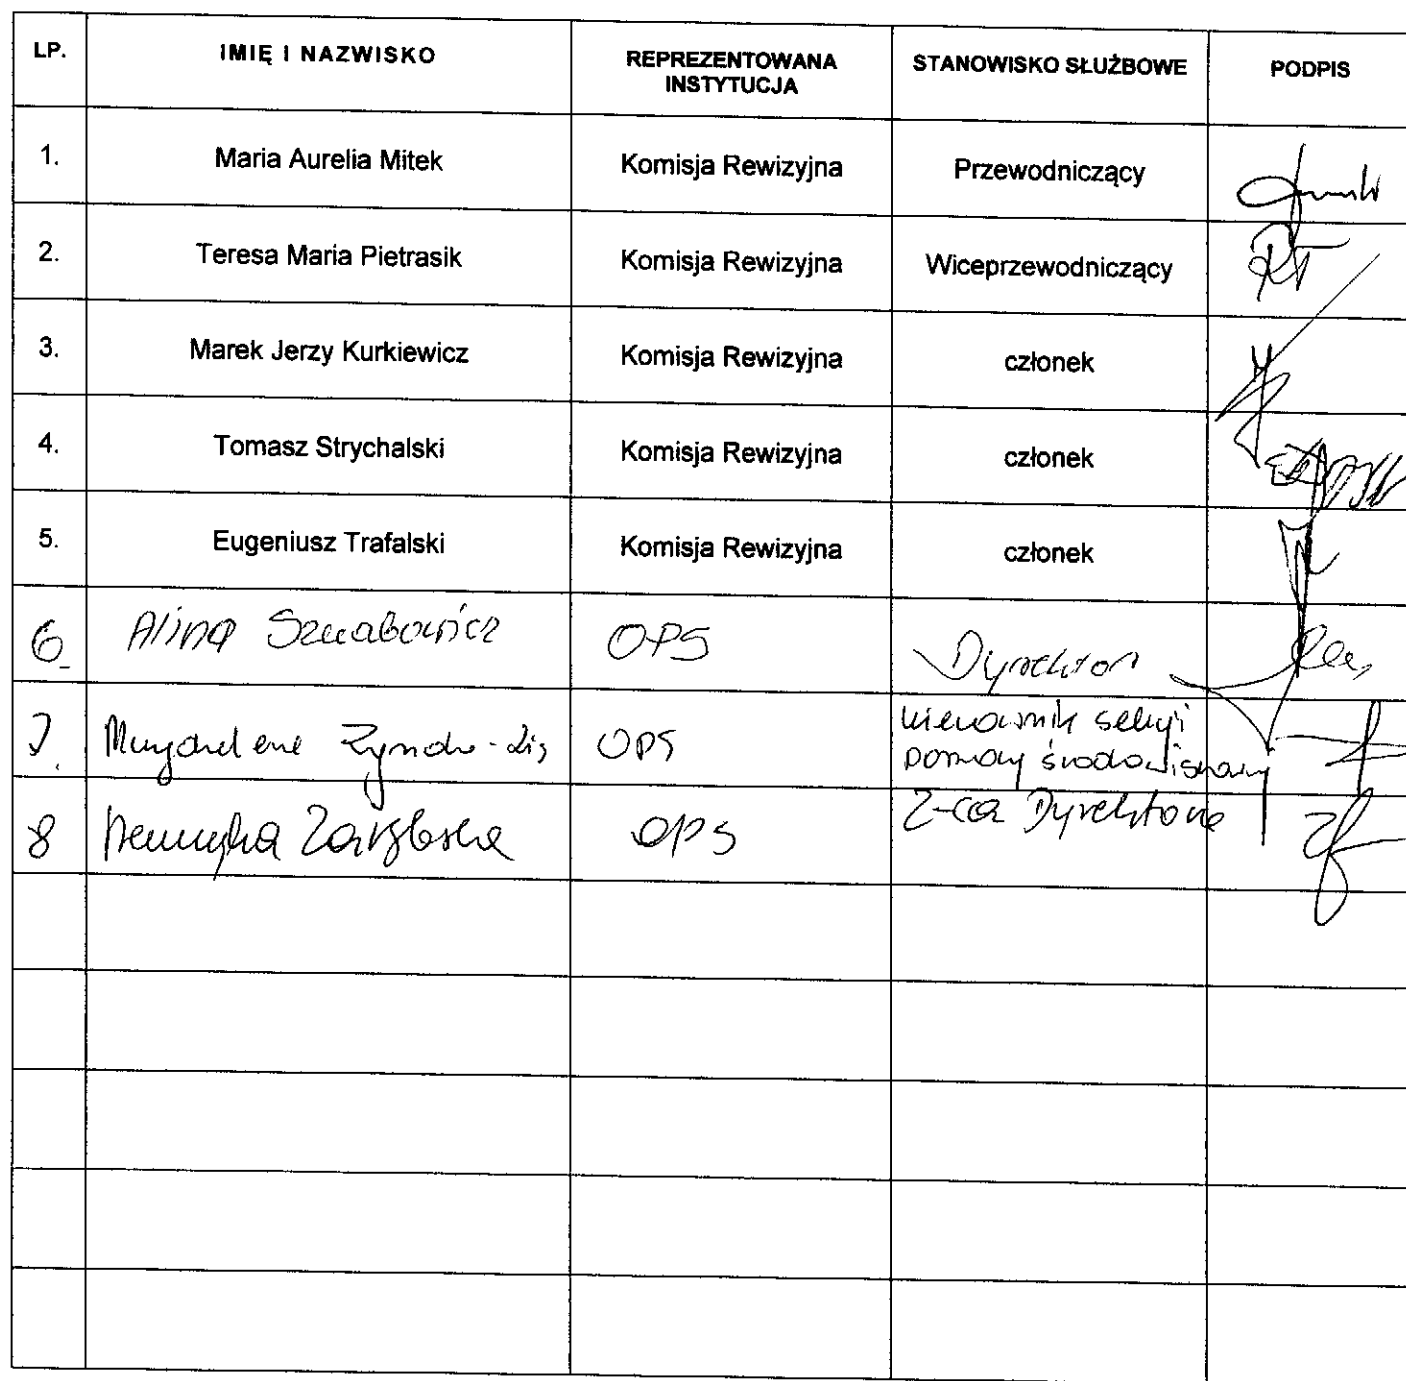 LP. IMIĘ I NAZWISKO REPREZENTOWANA INSTYTUCJA STANOWISKO SŁUŻBOWE PODPIS
1. Maria Aurelia Mitek Komisja Rewizyjna Przewodniczący
2. Teresa Maria Pietrasik Komisja Rewizyjna Wiceprzewodniczący
3. Marek Jerzy Kurkiewicz Komisja Rewizyjna członek
4. Tomasz Strychalski Komisja Rewizyjna członek
5. Eugeniusz Trafalski Komisja Rewizyjna członek
6. Alina OPS Dyrektor
7. OPS kierownik sekcji
pomocy środowiskowej
8 OPS Z-ca Dyrektora